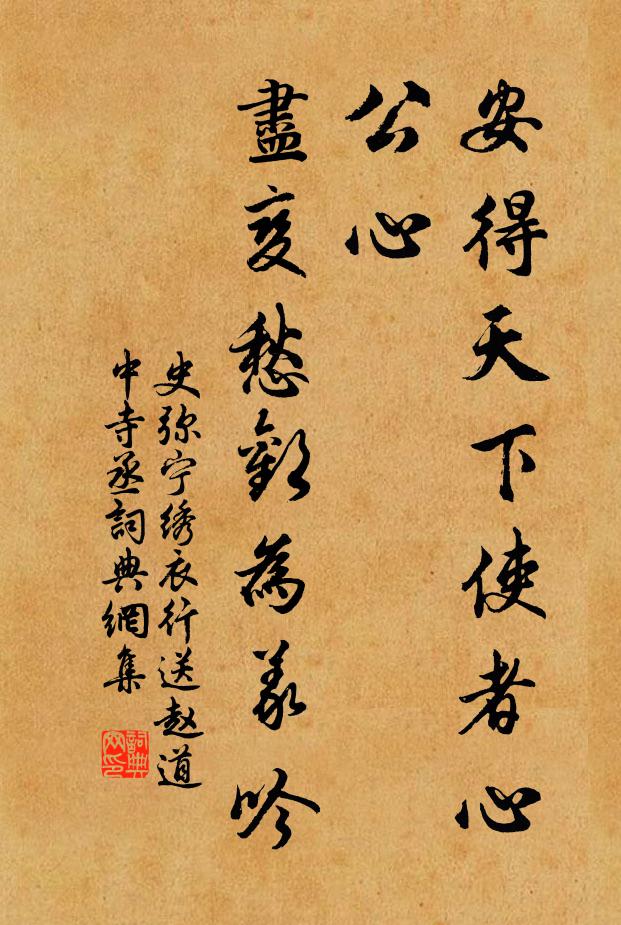 安得天下使者心
公心
盡变愁歎為吟
史弥宁绣衣行送赵道
中寺丞詞典網集
詞典網印